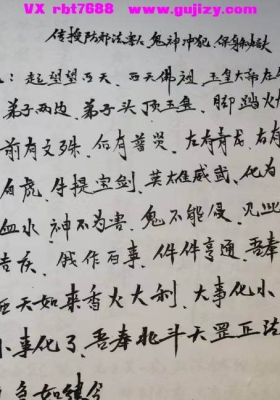 VX rbt7688 www.gujizy.com
传授防邪法害人鬼神冲犯,保身
:起望望西天,西天佛祖,玉皇大帝在
弟子两边,弟子头顶玉皇,脚踏火
前有文殊,后有普贤,左有青龙,右有
白虎,手提宝剑,英雄威武,化为
血水,神不为害,鬼不能侵,见此
吉庆,我作百事,件件亨通,吾奉
西天如来香火大利,大事化小,
小事化了,吾奉北斗天罡正法
急如律令